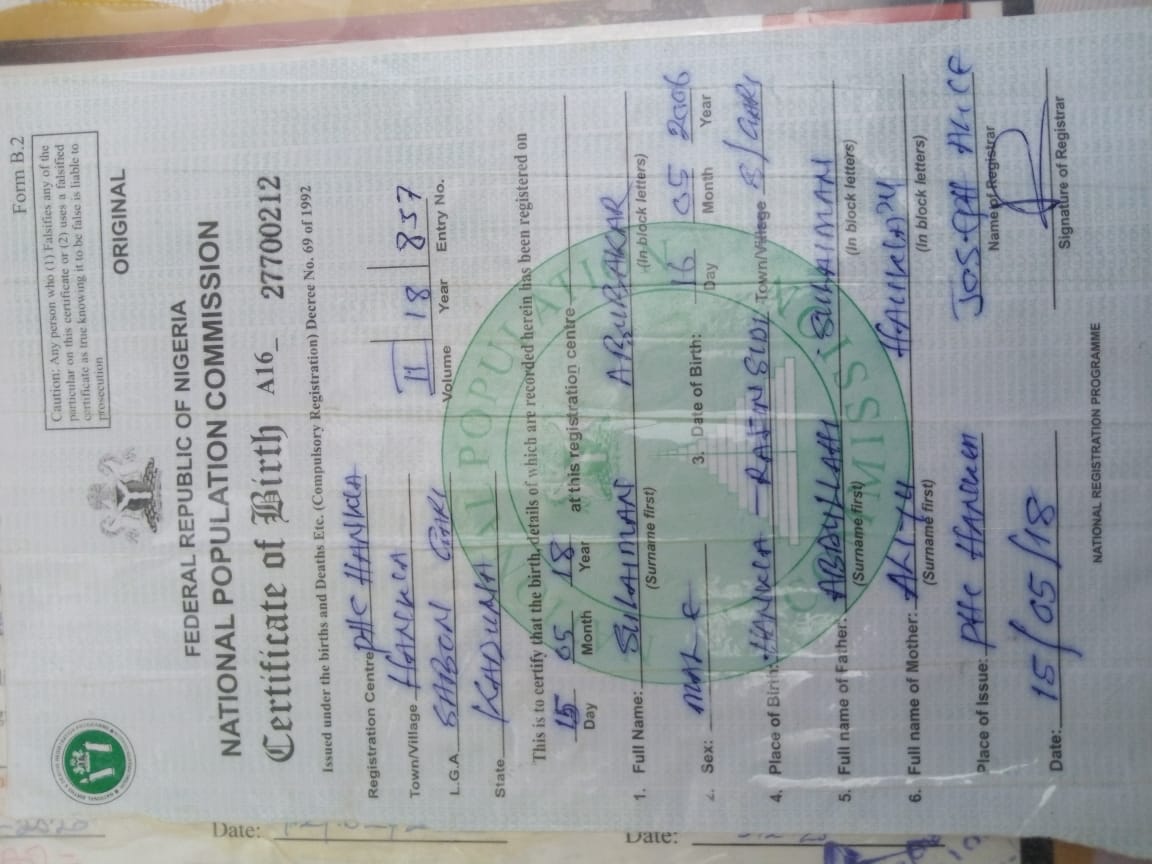 Form B.2
Caution: Any person who (1) Falsifies any of the
particular on this certificate or (2) uses a falsified
certificate as true knowing it to be false is liable to
prosecution
ORIGINAL
FEDERAL REPUBLIC OF NIGERIA
NATIONAL POPULATION COMMISSION
Certificate of Birth A16_ 277700212
Issued under the births and Deaths Etc. (Compulsory Registration) Decree No. 69 of 1992
Registration Centre PHC HANWA
II 18 857
Town/Village HANWA
Volume Year Entry No.
L.G.A. SABON GARI
State KADUNA
This is to certify that the birth, details of which are recorded herein has been registered on
15 05 18 at this registration centre
Day Month Year
1. Full Name: SULAIMAN ABUBAKAR
(Surname first) (In block letters)
2. Sex: MALE 3. Date of Birth: 16 05 2006
Day Month Year
4. Place of Birth: HANWA Town/Village S/GARI
5. Full name of Father: SULAIMAN
(Surname first) (In block letters)
6. Full name of Mother: ALIYU
(Surname first) (In block letters)
Place of Issue: PHC JOSEPH ALICE
Name of Registrar
Date: 15/05/18
Signature of Registrar
NATIONAL REGISTRATION PROGRAMME
NATIONAL POPULATION COMMISSION
Date:
Date: